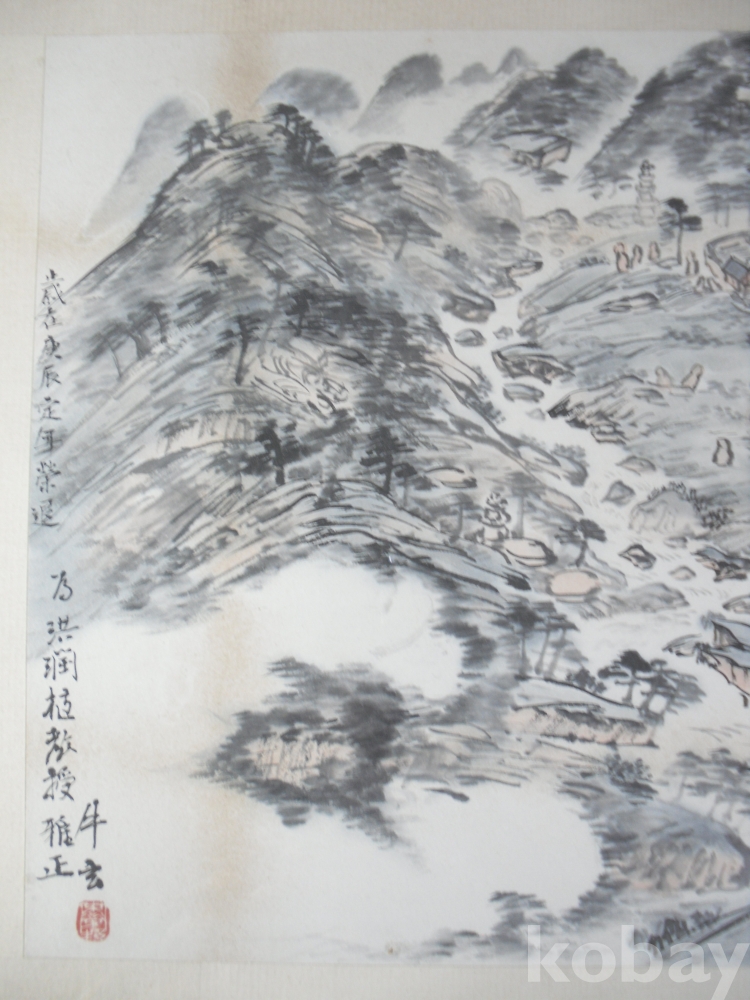 歲在庚辰定年榮退
為洪潤植教授雅正
牛玄
kobay